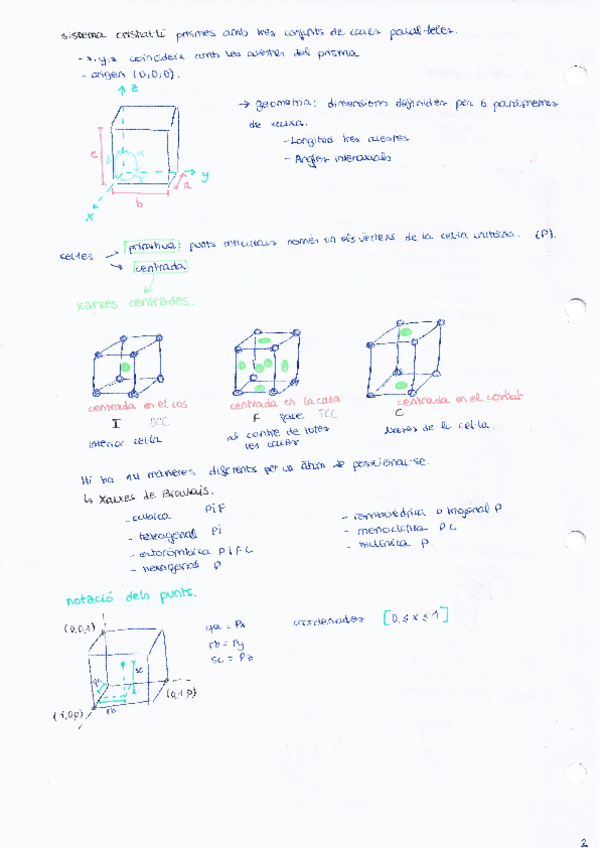 sistema cristal·lí prismes amb tres conjunts de cares paral·leles.
- x, y, z coincideix amb les arestes del prisma
- origen (0,0,0).
z
→ geometria: dimensions definides per 6 paràmetres
de xarxa.
- Longitud tres arestes
- Angles interaxials
c
β α
γ
y
a
b
x
cel·les → primitiva: punts reticulars només en els vèrtexs de la cel·la unitària. (P).
→ centrada
xarxes centrades.
centrada en el cos
I BCC
interior cel·la
centrada en la cara
F face FCC
al centre de totes
les cares
centrada en el
C
bases de la cel·la
Hi ha maneres diferents per un àtom de posicional-se.
↳ Xarxes de Bravais.
- cúbica P i F
- tetragonal P i
- ortoròmbica P i F C
- hexagonal P
- romboèdrica o trigonal P
- monoclínica P C
- triclínica P.
notació dels punts.
(0,0,1)
qa = Px
rb = Py
sc = Pz
coordenades [0 ≤ x ≤ 1]
qa
sc
rb
(0,1,0)
(1,0,0)
2